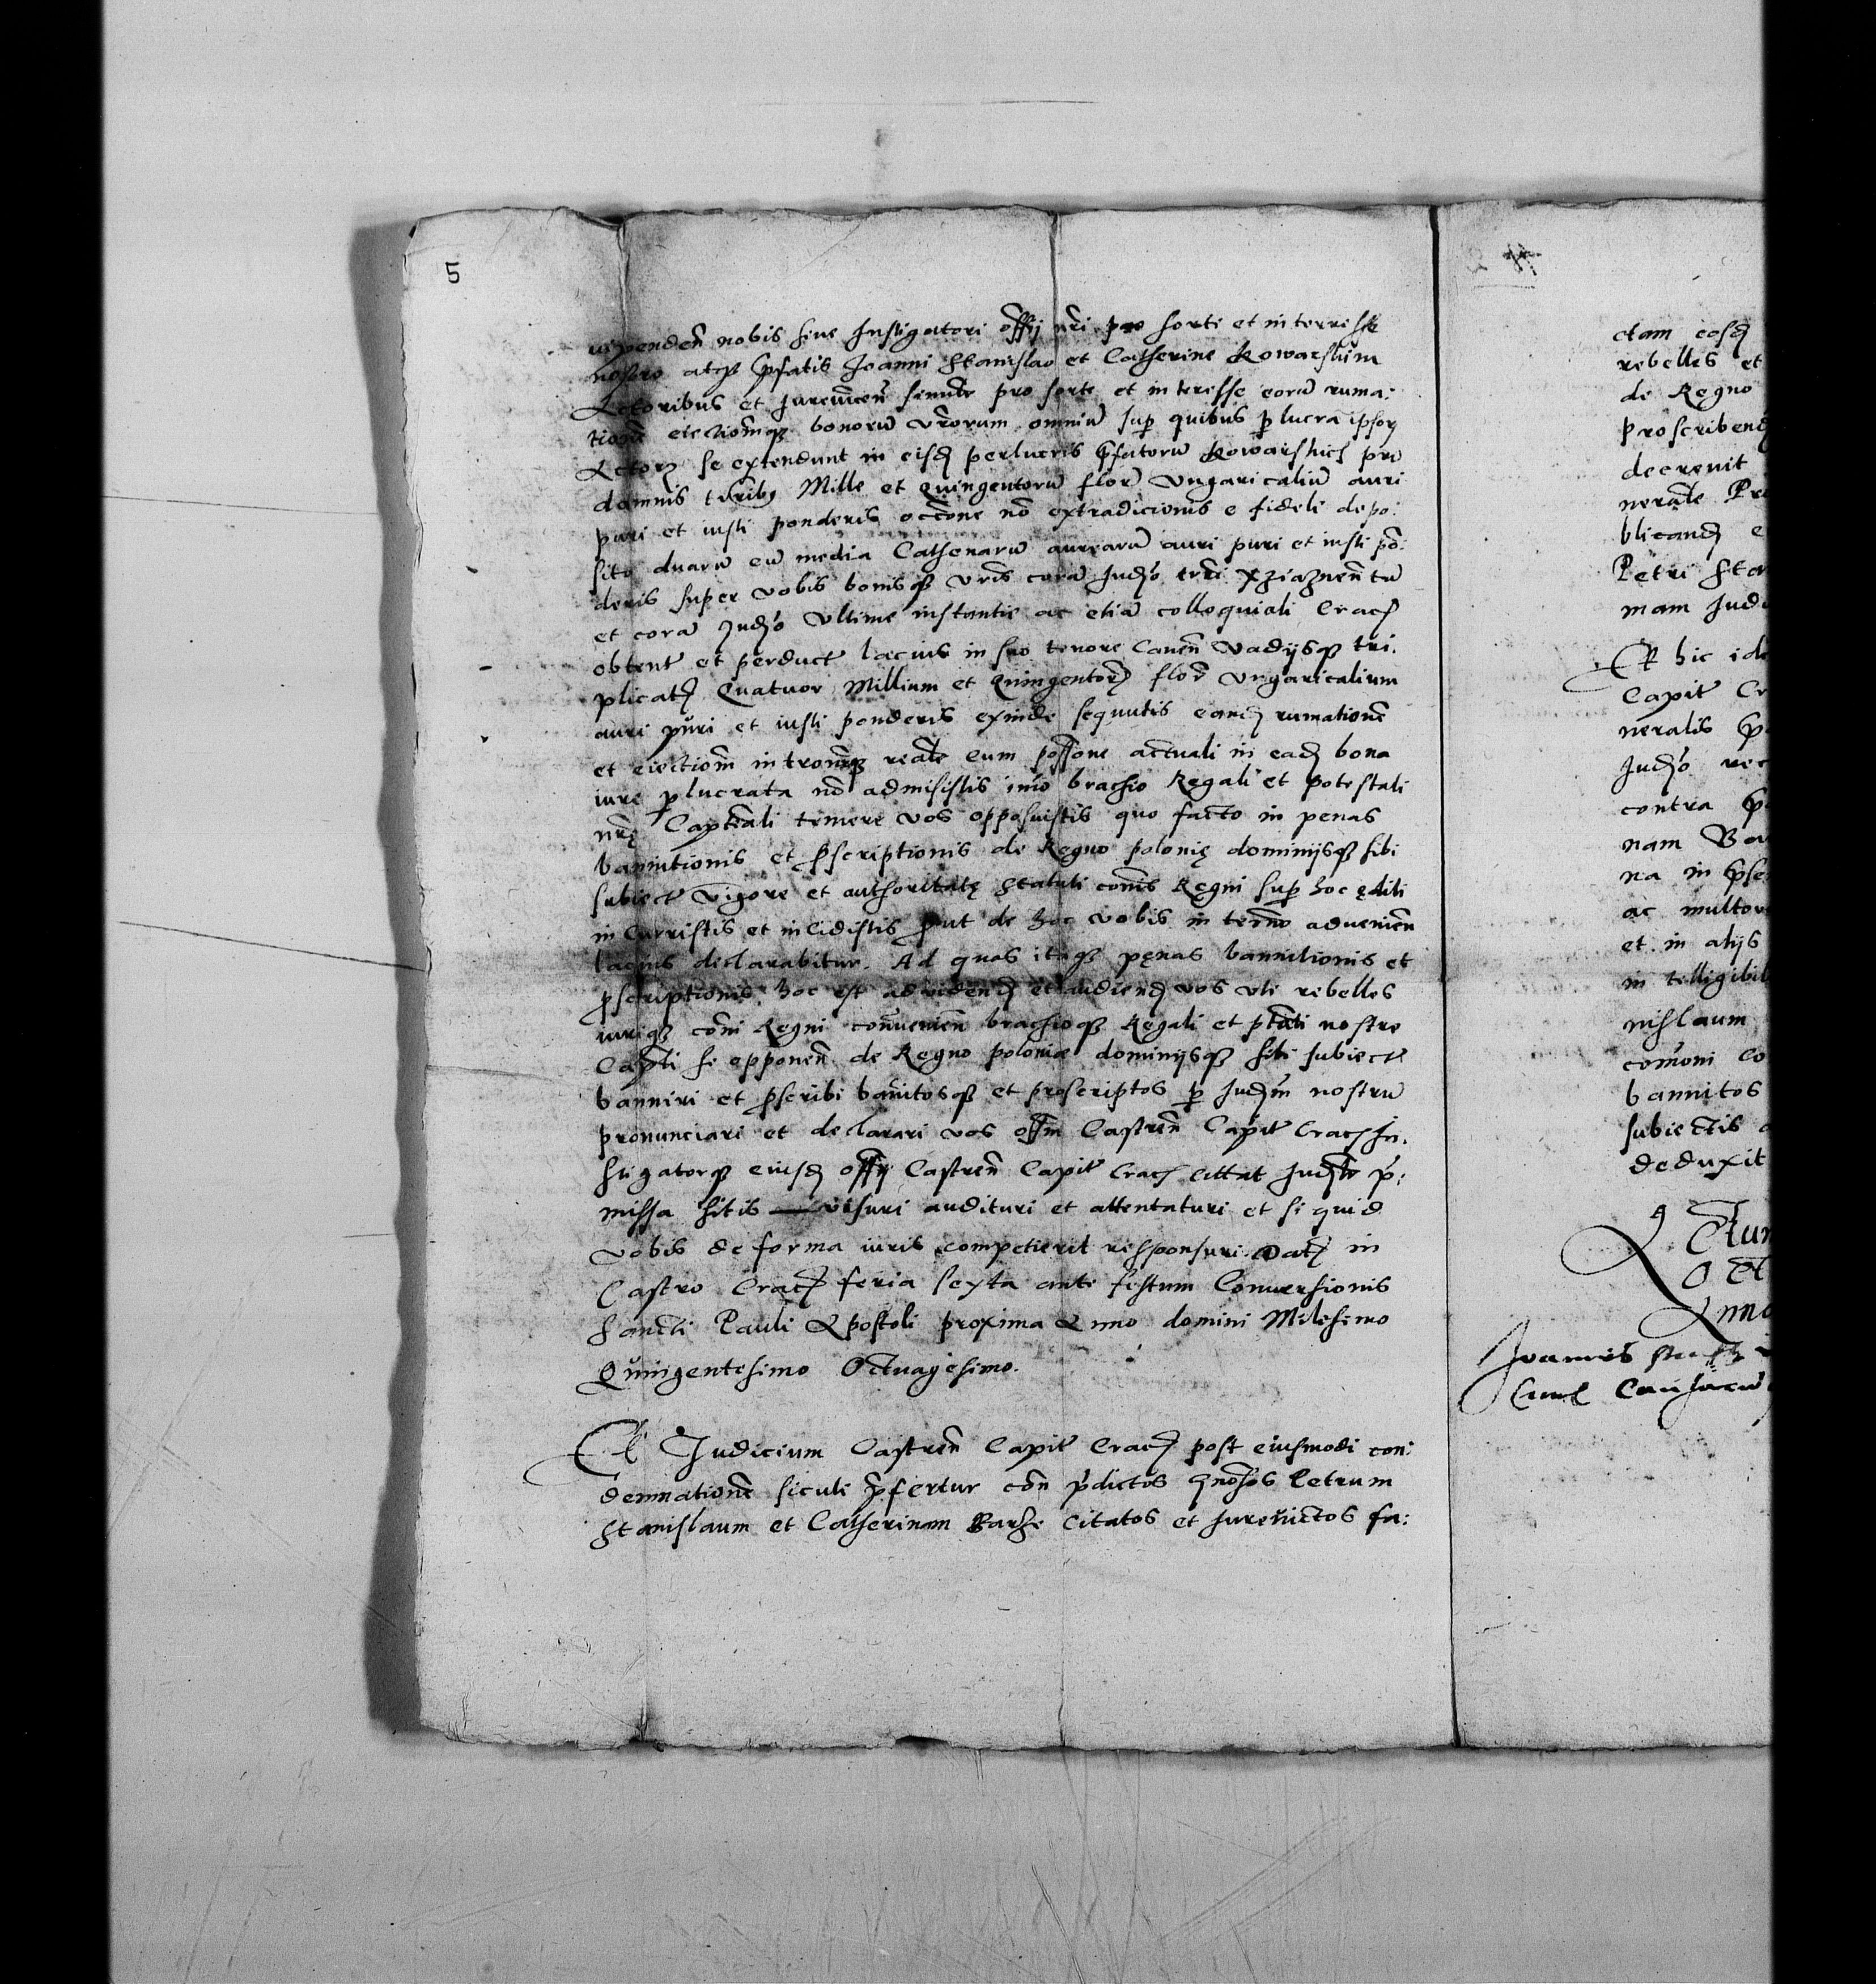 5
vipenden̄ nobis siue Instigatori offij nr̄i pro sorti et interresse
nostro atqȝ p̄fatis Joanni Stanislao et Catherine Kowarskim
Actoribus et Jureuicen̄ pro sorte et interesse eorū ruma:
tionē eiectionēqȝ bonorū vr̄orum omniū sup quibus p lucra ipsorꝫ
Actorꝫ se extendunt in eisdꝫ perlucris p̄fatorū Kowarskich pro
damnis Mille et Quingentorū florē Vngaricaliū auri
puri et iusti ponderis occōne nō extradicionis e fideli depo:
sito duarū cū media Cathenarū aurearū auri puri et iusti pō:
deris super vobis bonisqȝ vris corā Judꝫo trri Xziaznen̄ tū
et corā Judꝫo Vltime instantie ac etiā colloquiali Cracꝫ
obtent et perduct lacius in suo tenore Canen̄ Vadijsqȝ tri.
plicatꝫ Quatuor Millium et Quingentorꝫ florē Vngaricalium
auri puri et iusti ponderis exinde sequutis eandꝫ rumationē
et eiectionē intromꝫqȝ realē cum possone actuali in eadꝫ bona
iure plucrata nō admisistis imo brachio Regali et potestati
nrę Captēali temere vos opposuistis quo facto in penas
bannitionis et p̄scriptionis de Regno polonię dominijsqȝ sibi
subiect vigore et authoritatę statuti comīs Regni sup hoc ęditi
incurristis et incidistis p̄ut de hoc vobis in termō aduenien̄
lacius declarabitur. Ad quas itaqȝ pęnas bannitionis et
p̄scriptionis hoc est ad videndꝫ et audiendꝫ vos vti rebelles
iuriqȝ comi Regni conuenien̄ brachioqȝ Regali et ptati nostre
Capti se opponen̄ de Regno poloniæ dominijsqȝ sibi subiect
banniri et p̄scribi banitosqȝ et proscriptos p Judꝫm nostrū
pronunciari et declarari vos offm Castren̄ Capit Cracꝫ In:
stigatorqȝ eiusdꝫ offij Castren̄ Capit Cracꝫ cittat p̄:
missa sitis — visuri audituri et attentaturi et si quid
vobis de forma iuris competierit responsuri. Datꝫ in
Castro Cracꝫ feria sexta ante festum Conuersionis
Sancti Pauli Apostoli proxima Anno domini Milesimo
Quingentesimo Octuagesimo.
Et Judicium Castren̄ Capit Cracꝫ post eiusmodi con:
demnationē sicuti p̄fertur con p̄dictos gnosos Petrum
Stanislaum et Catherinam Barhe citatos et Jureuictos fa:
ctam eosdꝫ
rebelles et
de Regno
proscribendꝫ
decreuit
nerale
blicandꝫ e
Petri Stan
mam Judi
Et hic ide
Capit Cr
neralis
Judꝫo rec
contra
nam Ba
na in
ac multor
et in alijs
intelligibil
nislaum
comuni Co
bannitos
subiectis
deduxit
Actum
Anno
Joannes